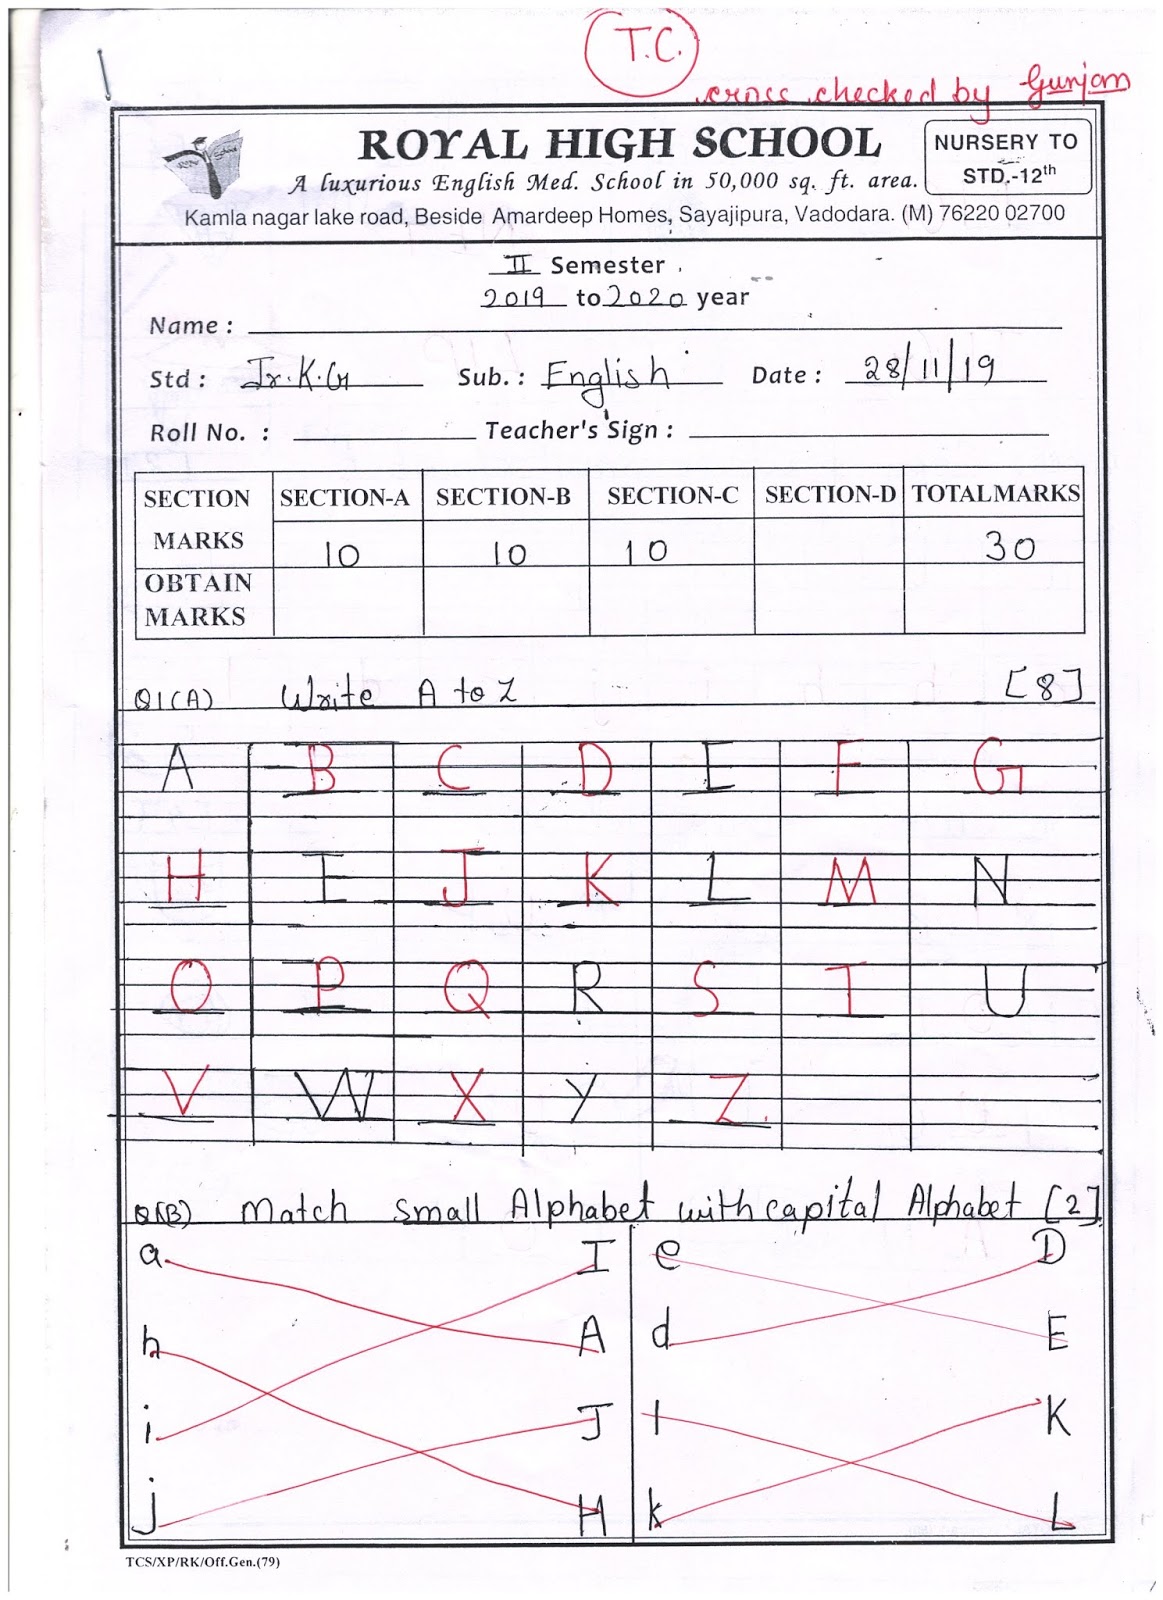 T.C.
cross checked by Gunjan
ROYAL HIGH SCHOOL
A luxurious English Med. School in 50,000 sq. ft. area.
NURSERY TO
STD.-12th
Kamla nagar lake road, Beside Amardeep Homes, Sayajipura, Vadodara. (M) 76220 02700
II Semester
2019 to 2020 year
Name :
Std : Jr.K.G Sub. : English Date : 28/11/19
Roll No. : Teacher's Sign :
SECTION MARKS SECTION-A SECTION-B SECTION-C SECTION-D TOTAL MARKS
10 10 10 30
OBTAIN MARKS
Q1(A) Write A to Z [8]
A B C D E F G
H I J K L M N
O P Q R S T U
V W X Y Z
Q1(B) Match small Alphabet with capital Alphabet [2]
a I e D
h A d E
i J l K
j H k L
TCS/XP/RK/Off.Gen.(79)